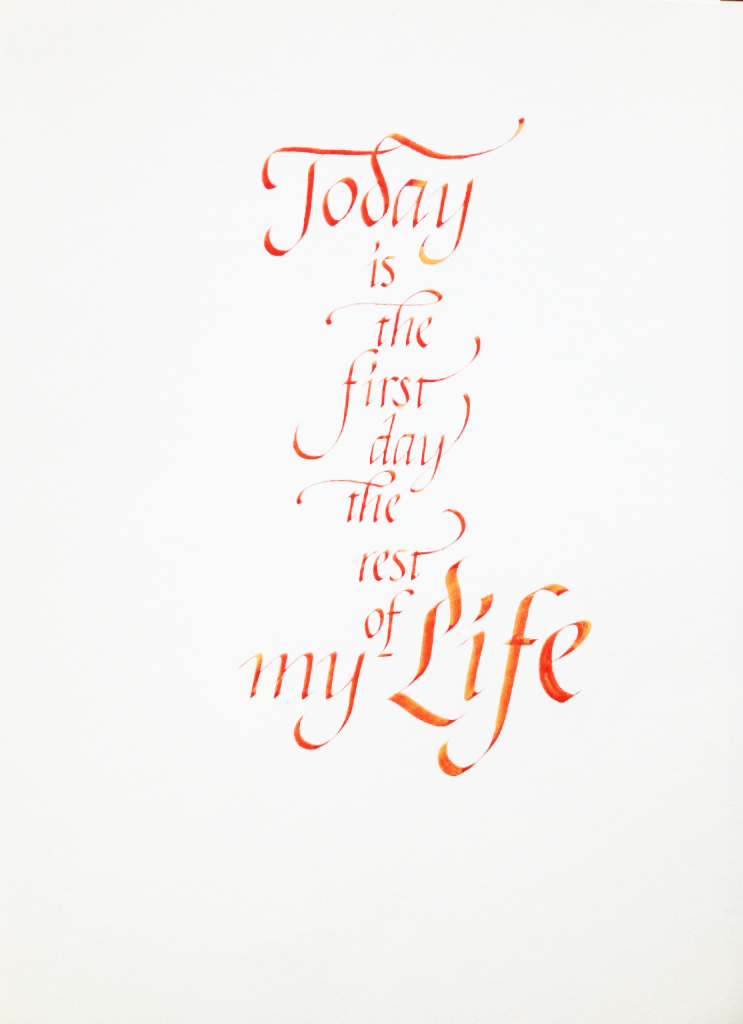 Today
is
the
first
day
the
rest
of
my Life